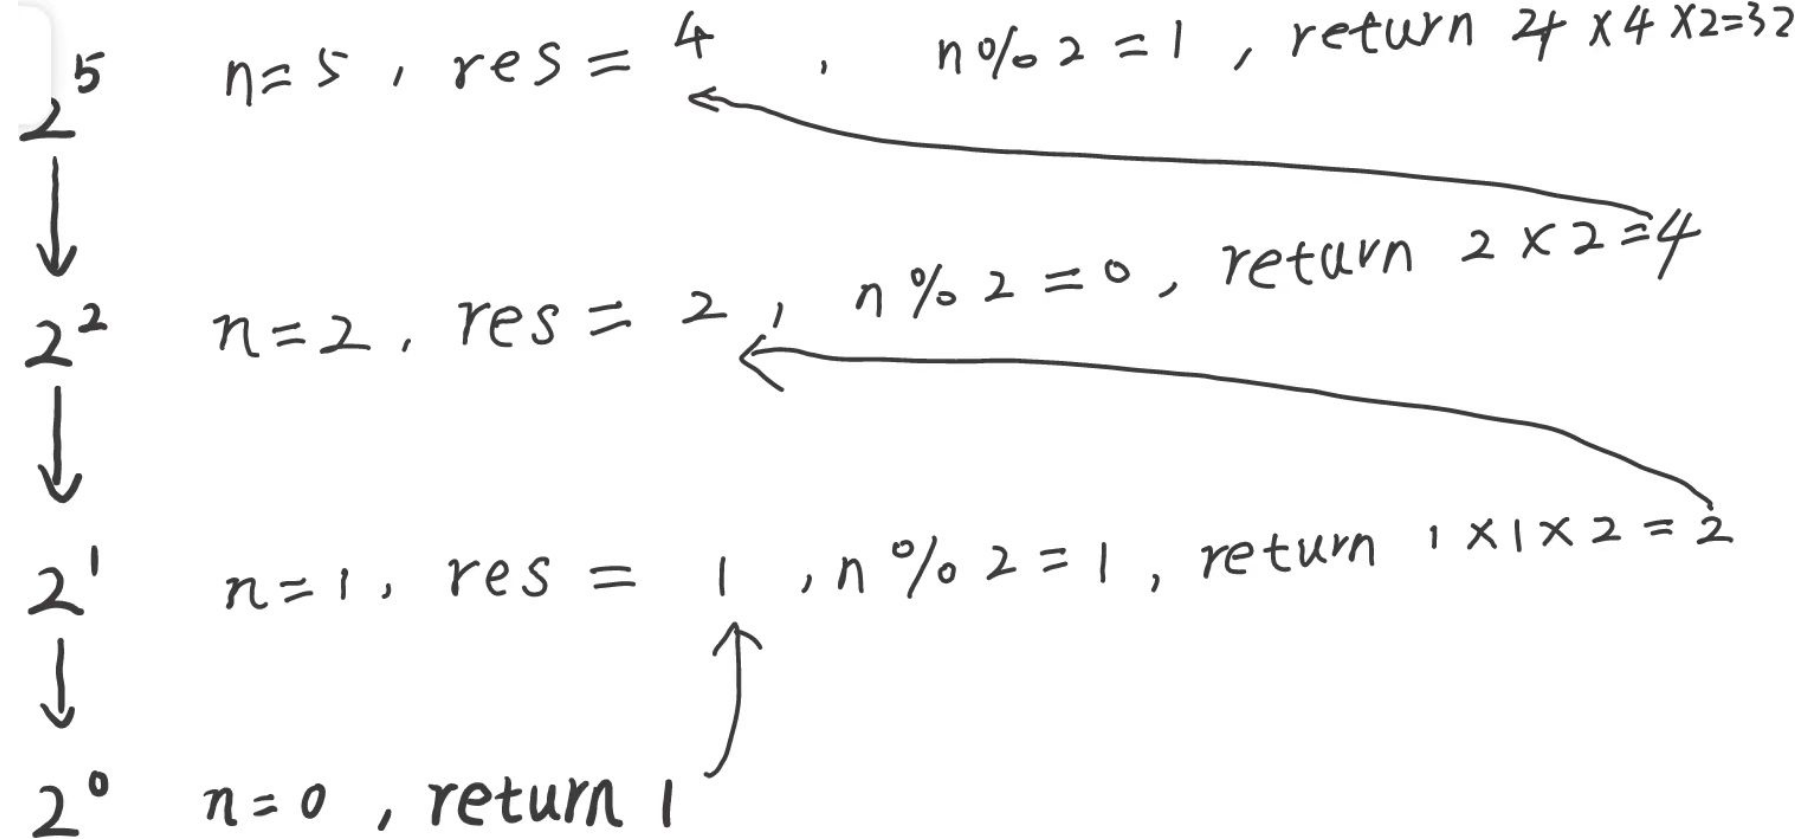 2⁵ n=5, res=4, n%2=1, return 4×4×2=32
2² n=2, res=2, n%2=0, return 2×2=4
2¹ n=1, res=1, n%2=1, return 1×1×2=2
2⁰ n=0, return 1